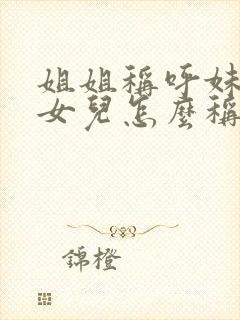 姐姐稱呼妹
女兒怎麼稱
錦橙